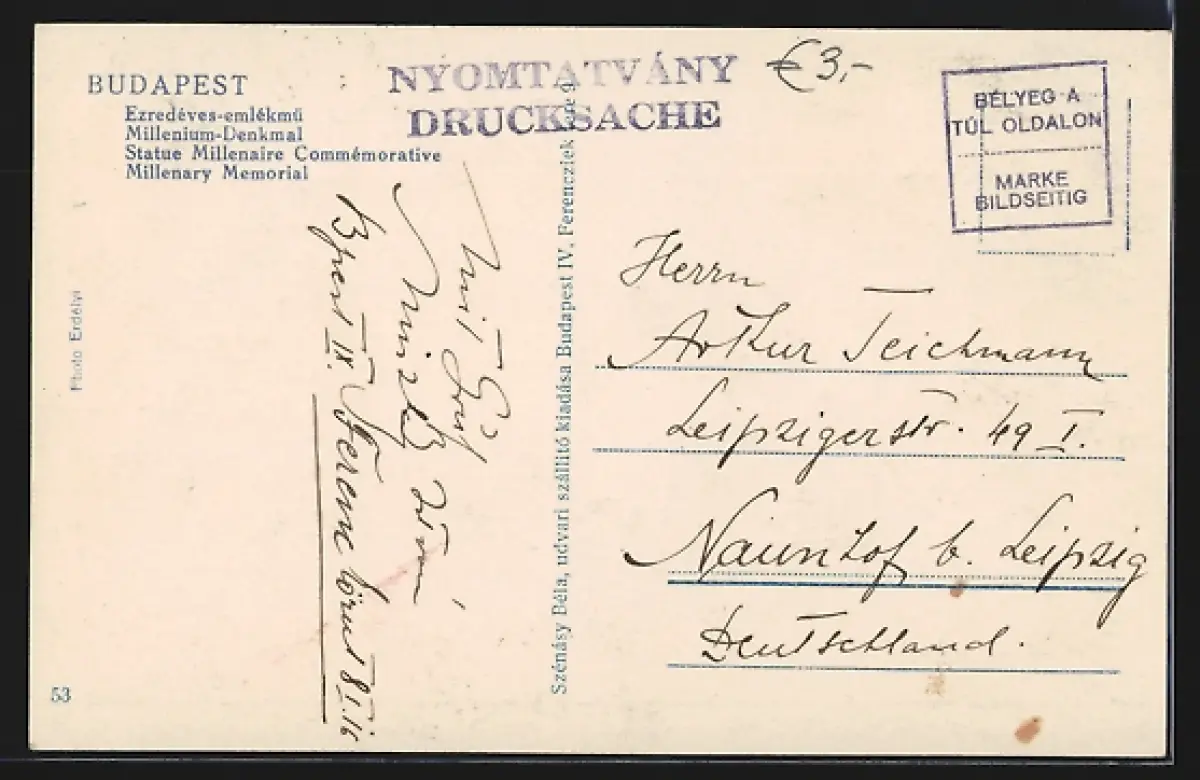 BUDAPEST
Ezredéves-emlékmű
Millenium-Denkmal
Statue Millenaire Commémorative
Millenary Memorial
NYOMTATVÁNY
DRUCKSACHE
€ 3,-
BÉLYEG A
TÚL OLDALON
MARKE
BILDSEITIG
Photo Erdélyi
Mit Gruß
Bpest IX. Ferenc körut 8 I. 16
Szénásy Béla, udvari szállító kiadása Budapest IV, Ferencziek
Herrn
Arthur Teichmann
Leipzigerstr. 49 I.
Naunhof b. Leipzig
Deutschland.
53